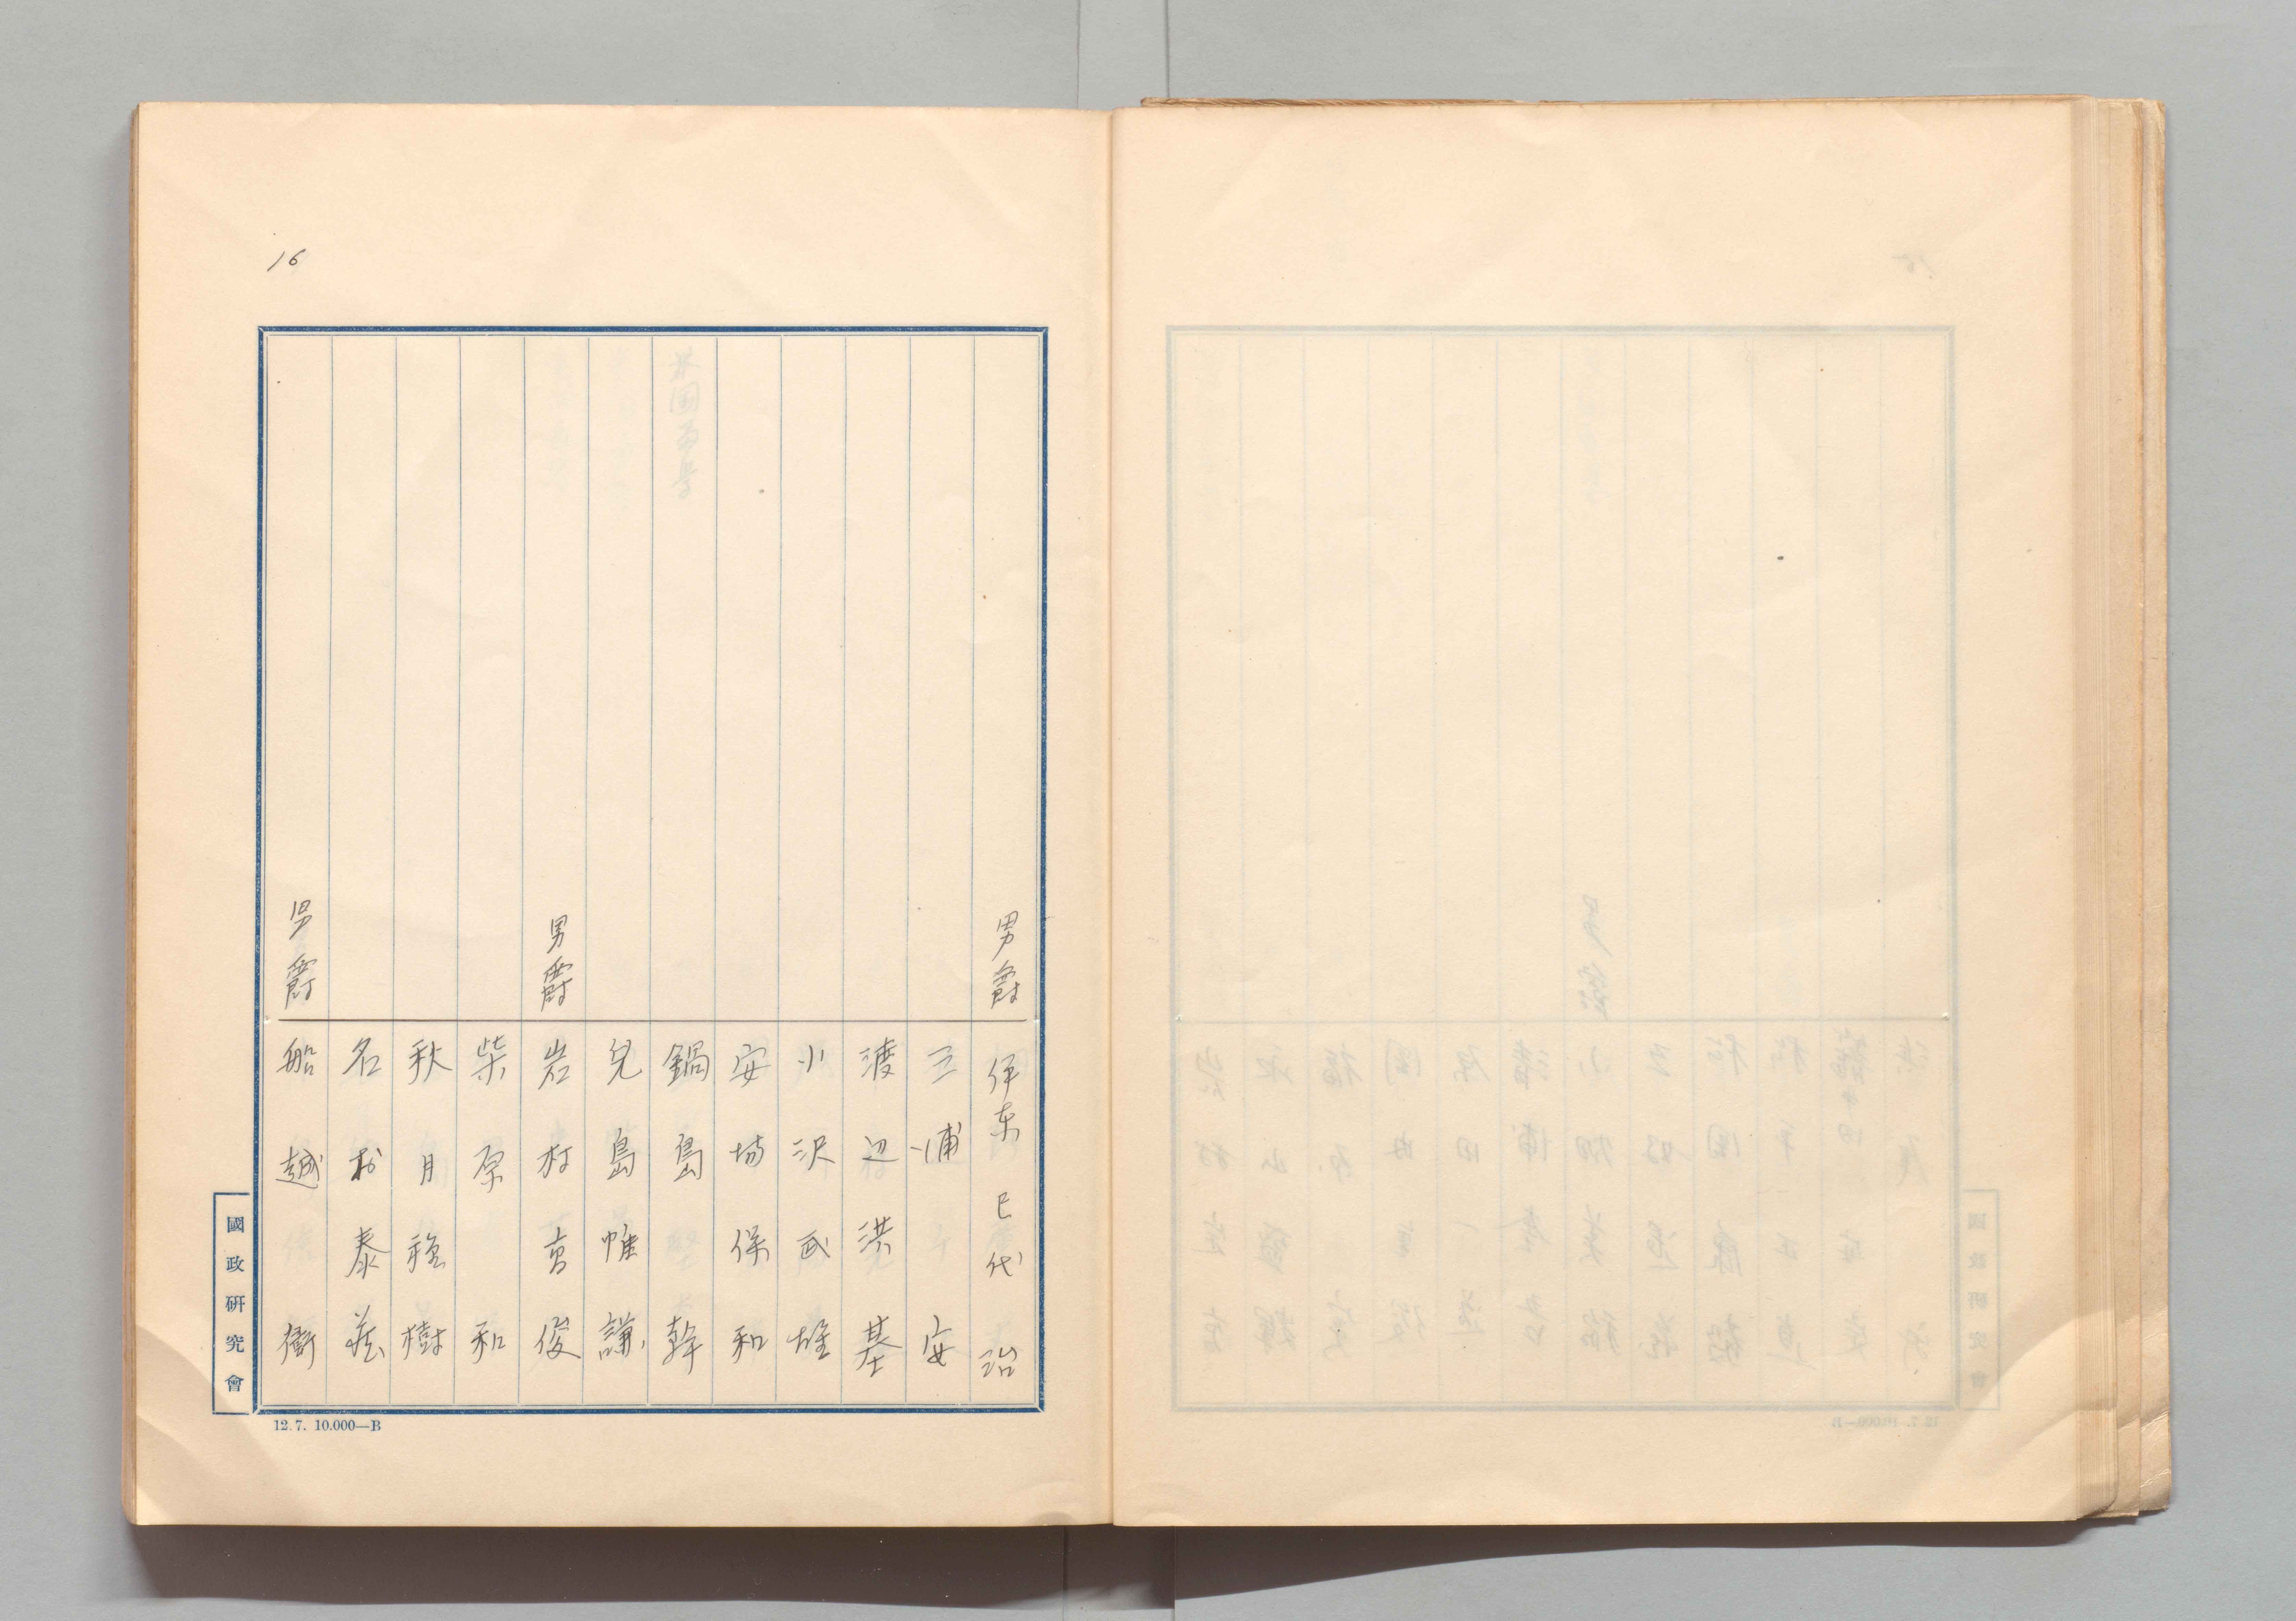 16
男爵 伊东 巳代治
三浦 安
渡辺 洪基
小沢 武雄
安場 保和
鍋島 幹
兒島 惟謙
男爵 岩村 高俊
柴原 和
秋月 種樹
名村 泰蔵
男爵 船越 衛
國政研究會
12.7. 10.000—B